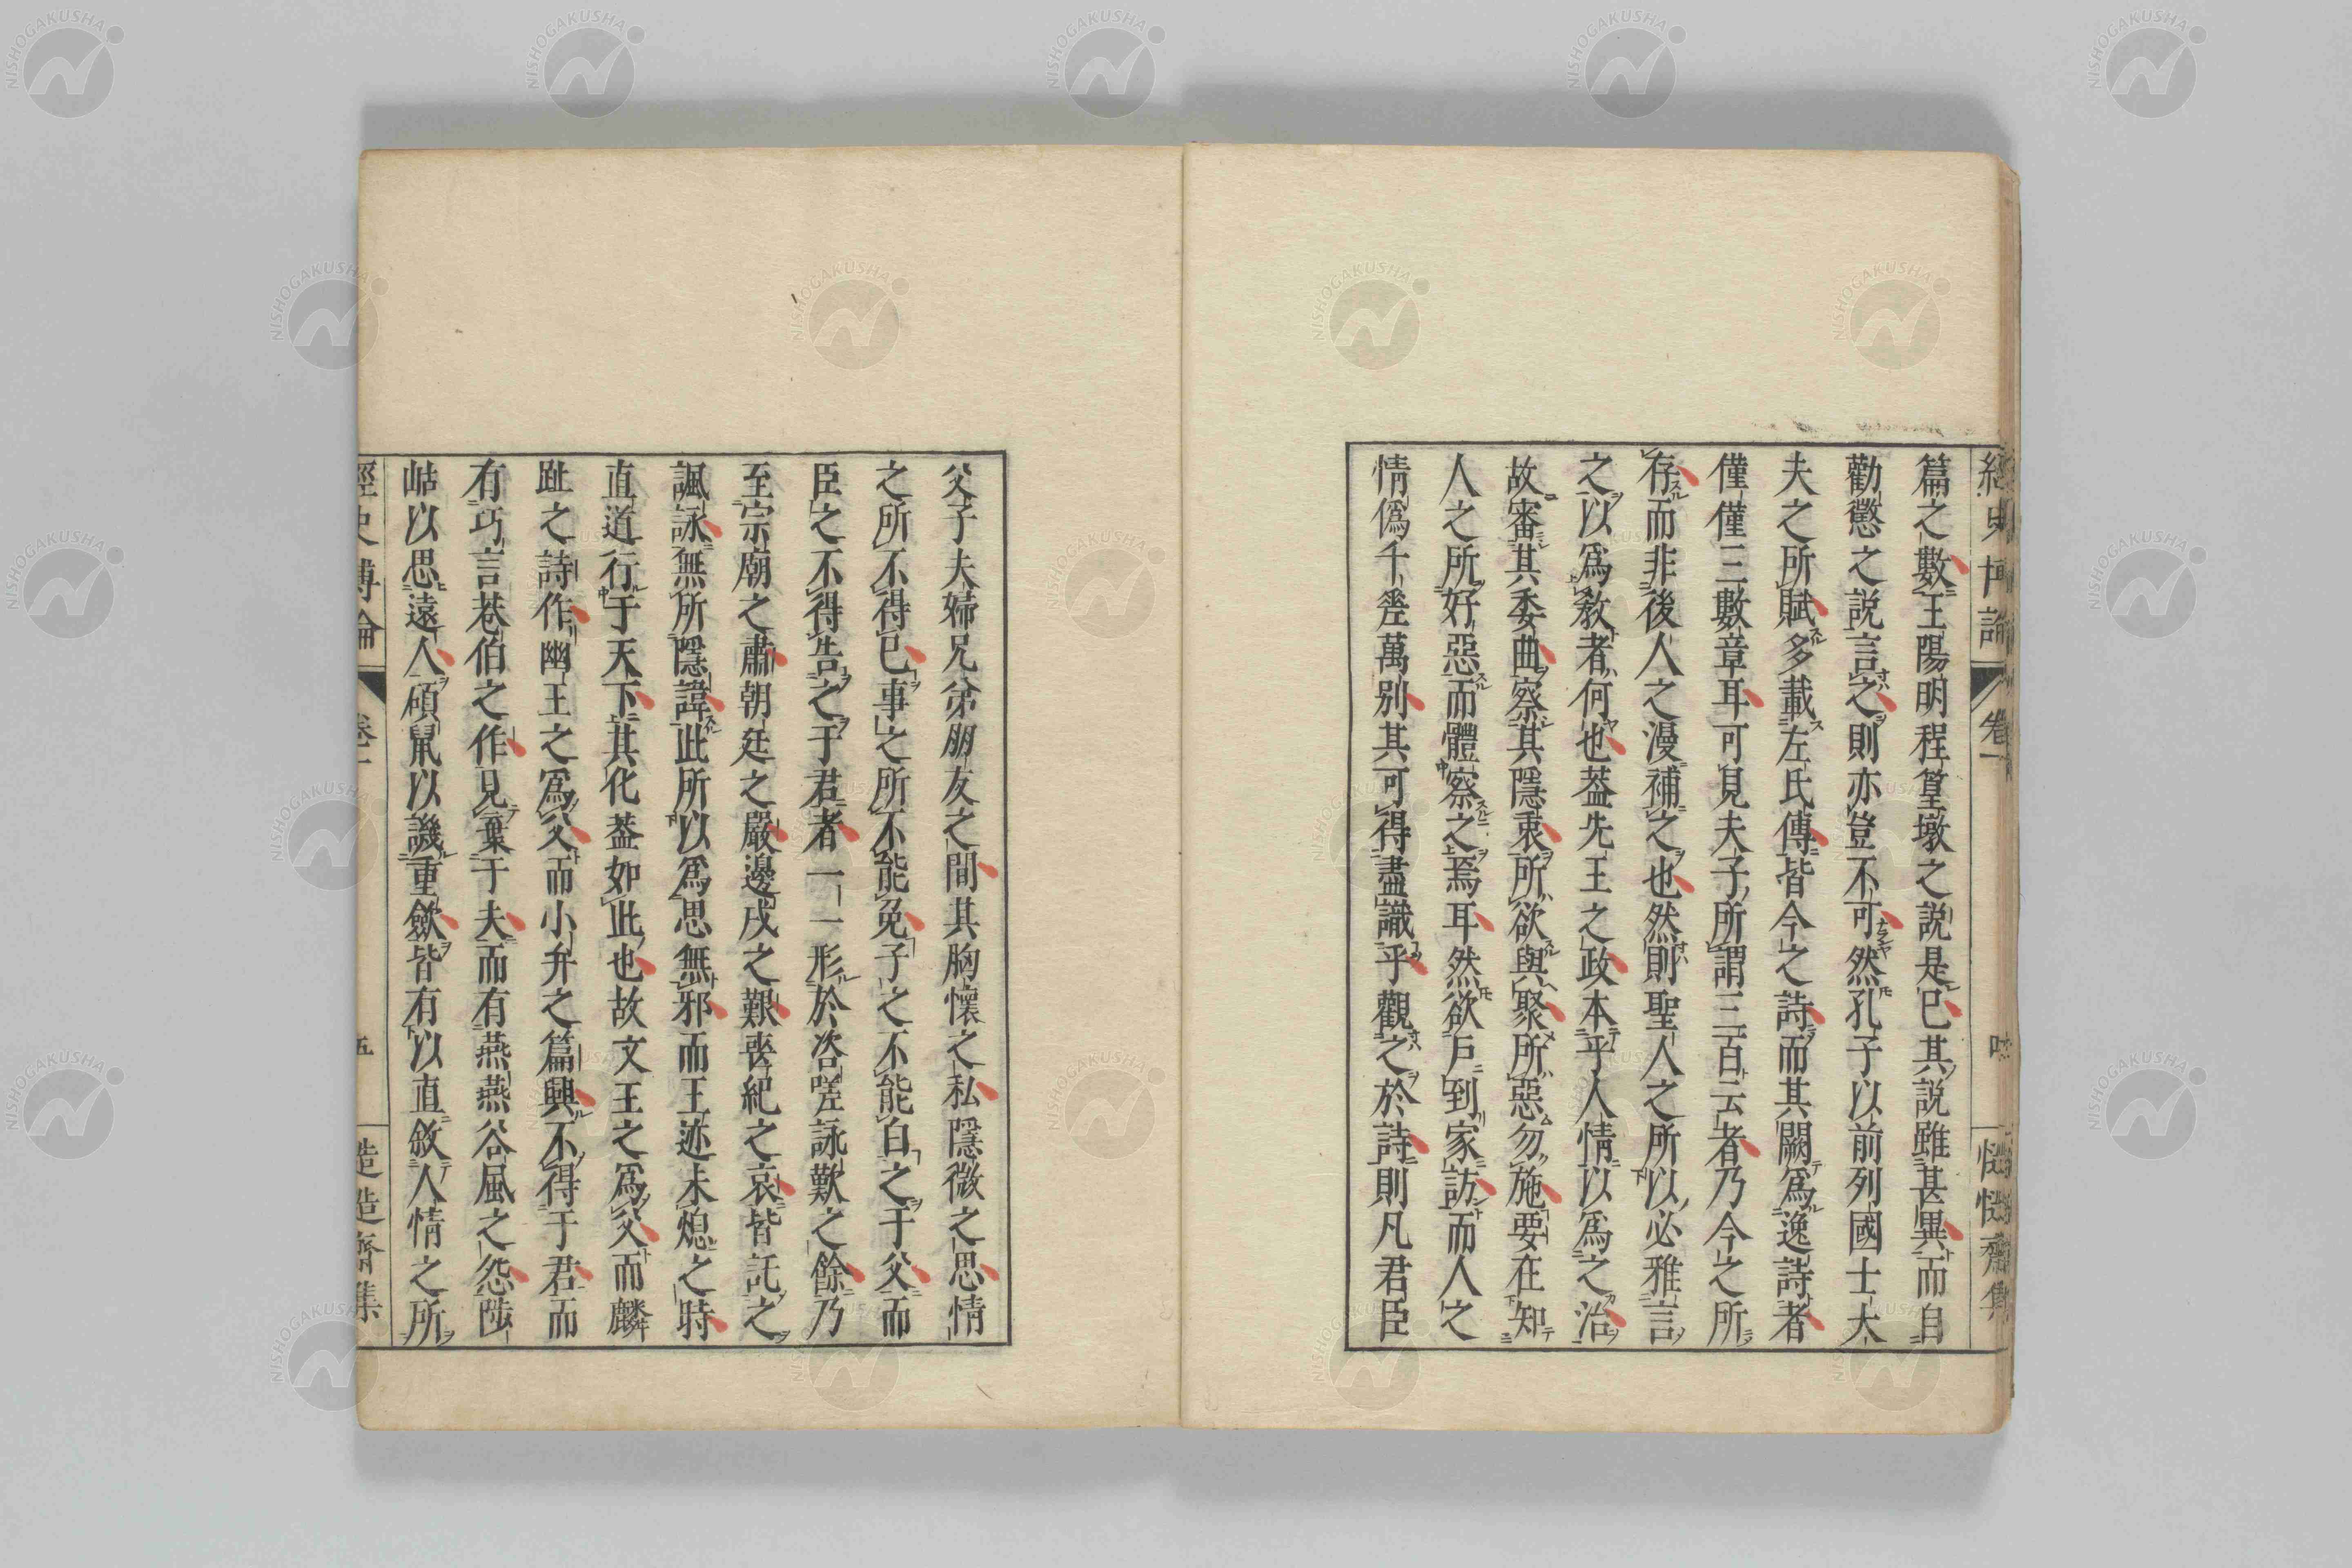 經史博論 卷一 慥慥齋集
篇之數王陽明程篁墩之說是已其說雖甚異而自
勸懲之說言之則亦豈不可然孔子以前列國士大
夫之所賦多載左氏傳皆今之詩而其闕爲逸詩者
僅僅三數章耳可見夫子所謂三百云者乃今之所
存而非後人之漫補之也然則聖人之所以必雅言
之以爲教者何也蓋先王之政本乎人情以爲之治
故審其委曲察其隱衷所欲與聚所惡勿施要在知
人之所好惡而體察之焉耳然欲戶到家訪而人之
情僞千差萬別其可得盡識乎觀之於詩則凡君臣
父子夫婦兄弟朋友之間其胸懷之私隱微之思情
之所不得已事之所不能免子之不能白之于父而
臣之不得告之于君者一一形於咨嗟詠歎之餘乃
至宗廟之肅朝廷之嚴邊戍之艱喪紀之哀皆託之
諷詠無所隱諱此所以爲思無邪而王迹未熄之時
直道行于天下其化蓋如此也故文王之爲父而麟
趾之詩作幽王之爲父而小弁之篇興不得于君而
有巧言巷伯之作見棄于夫而有燕燕谷風之怨陟
岵以思遠人碩鼠以譏重斂皆有以直敘人情之所
經史博論 卷一 五 慥慥齋集
NISHOGAKUSHA